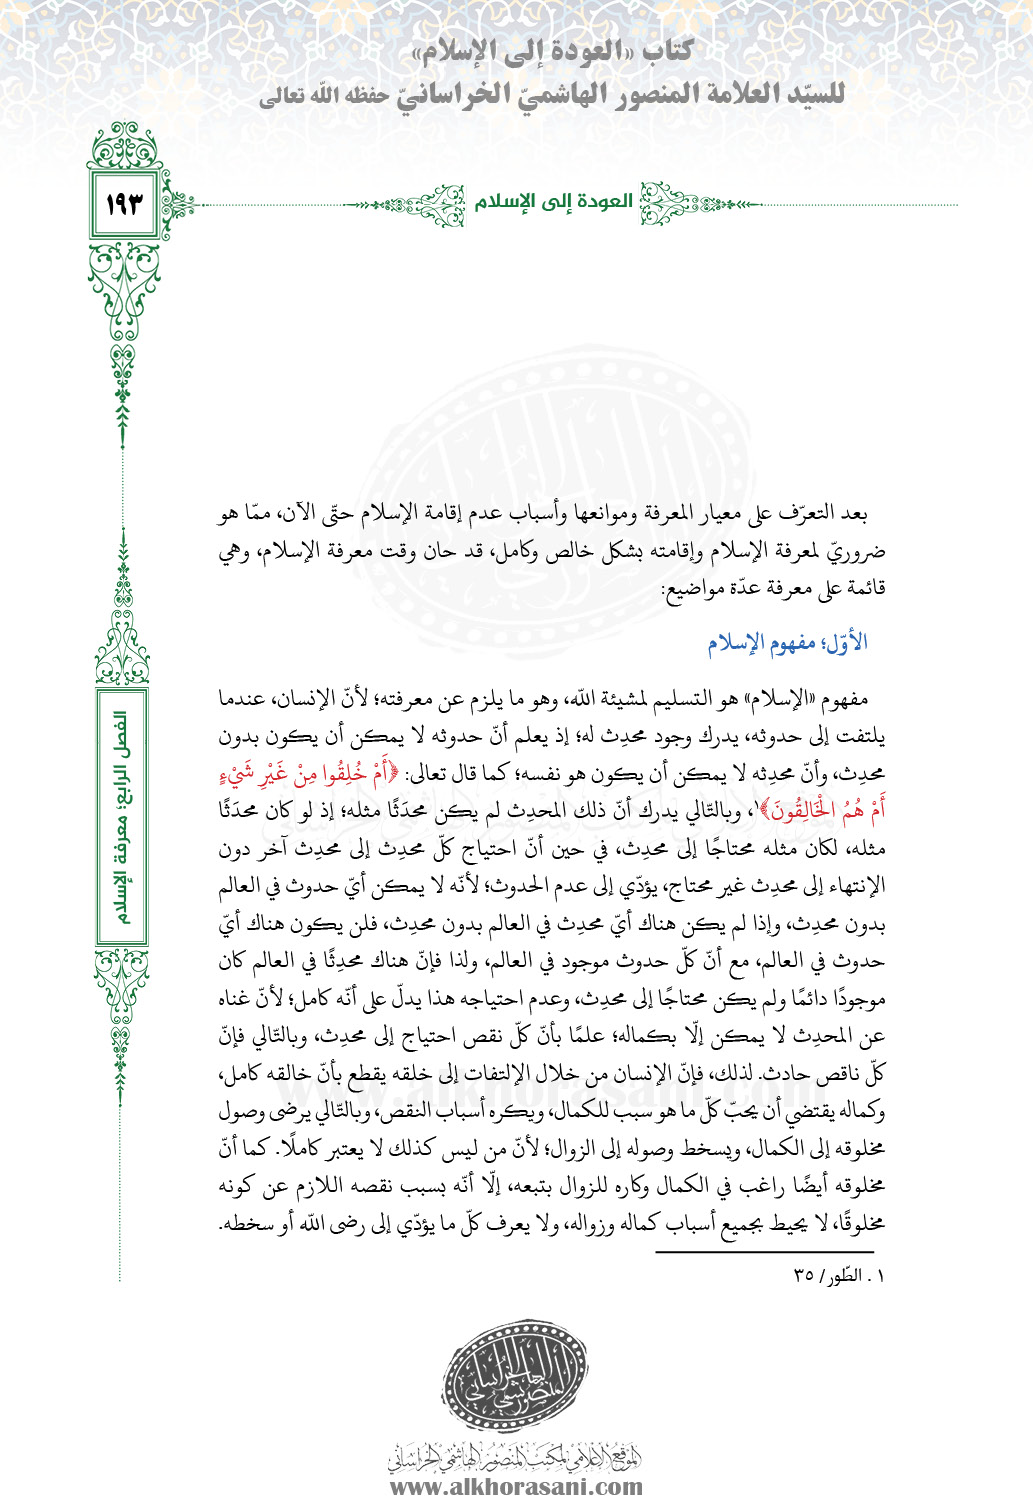 كتاب «العودة إلى الإسلام»
للسيّد العلامة المنصور الهاشميّ الخراسانيّ حفظه اللّه تعالى
١٩٣
العودة إلى الإسلام
بعد التعرّف على معيار المعرفة وموانعها وأسباب عدم إقامة الإسلام حتّى الآن، ممّا هو
ضروريّ لمعرفة الإسلام وإقامته بشكل خالص وكامل، قد حان وقت معرفة الإسلام، وهي
قائمة على معرفة عدّة مواضيع:
الأوّل؛ مفهوم الإسلام
مفهوم «الإسلام» هو التسليم لمشيئة اللّه، وهو ما يلزم عن معرفته؛ لأنّ الإنسان، عندما
يلتفت إلى حدوثه، يدرك وجود محدِث له؛ إذ يعلم أنّ حدوثه لا يمكن أن يكون بدون
محدِث، وأنّ محدِثه لا يمكن أن يكون هو نفسه؛ كما قال تعالى: ﴿أَمْ خُلِقُوا مِنْ غَيْرِ شَيْءٍ
أَمْ هُمُ الْخَالِقُونَ﴾١، وبالتّالي يدرك أنّ ذلك المحدِث لم يكن محدَثًا مثله؛ إذ لو كان محدَثًا
مثله، لكان مثله محتاجًا إلى محدِث، في حين أنّ احتياج كلّ محدِث إلى محدِث آخر دون
الإنتهاء إلى محدِث غير محتاج، يؤدّي إلى عدم الحدوث؛ لأنّه لا يمكن أيّ حدوث في العالم
بدون محدِث، وإذا لم يكن هناك أيّ محدِث في العالم بدون محدِث، فلن يكون هناك أيّ
حدوث في العالم، مع أنّ كلّ حدوث موجود في العالم، ولذا فإنّ هناك محدِثًا في العالم كان
موجودًا دائمًا ولم يكن محتاجًا إلى محدِث، وعدم احتياجه هذا يدلّ على أنّه كامل؛ لأنّ غناه
عن المحدِث لا يمكن إلّا بكماله؛ علمًا بأنّ كلّ نقص احتياج إلى محدِث، وبالتّالي فإنّ
كلّ ناقص حادث. لذلك، فإنّ الإنسان من خلال الإلتفات إلى خلقه يقطع بأنّ خالقه كامل،
وكماله يقتضي أن يحبّ كلّ ما هو سبب للكمال، ويكره أسباب النقص، وبالتّالي يرضى وصول
مخلوقه إلى الكمال، ويسخط وصوله إلى الزوال؛ لأنّ من ليس كذلك لا يعتبر كاملًا. كما أنّ
مخلوقه أيضًا راغب في الكمال وكاره للزوال بتبعه، إلّا أنّه بسبب نقصه اللازم عن كونه
مخلوقًا، لا يحيط بجميع أسباب كماله وزواله، ولا يعرف كلّ ما يؤدّي إلى رضى اللّه أو سخطه.
١ . الطّور/ ٣٥
الفصل الرابع؛ معرفة الإسلام
المنصور الهاشمي الخراساني
الموقع الإعلامي لمكتب المنصور الهاشمي الخراساني
www.alkhorasani.com